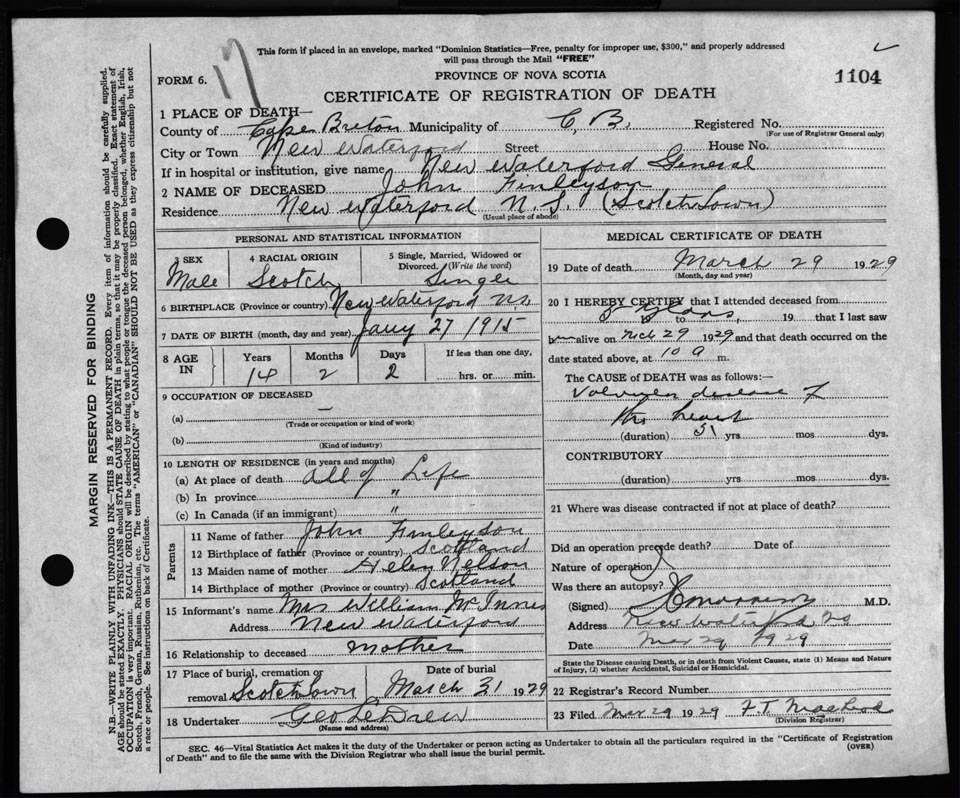 17
This form if placed in an envelope, marked "Dominion Statistics—Free, penalty for improper use, $300," and properly addressed
will pass through the Mail "FREE"
FORM 6.
PROVINCE OF NOVA SCOTIA
1104
CERTIFICATE OF REGISTRATION OF DEATH
1 PLACE OF DEATH—
County of Cape Breton Municipality of C, B. Registered No.
(For use of Registrar General only)
City or Town New Waterford Street House No.
If in hospital or institution, give name New Waterford General
2 NAME OF DECEASED John Finleyson
Residence New Waterford N. S. (Scotchtown)
(Usual place of abode)
PERSONAL AND STATISTICAL INFORMATION
3 SEX 4 RACIAL ORIGIN 5 Single, Married, Widowed or Divorced. (Write the word)
Male Scotch Single
6 BIRTHPLACE (Province or country) New Waterford N.S.
7 DATE OF BIRTH (month, day and year) Jany 27 1915
8 AGE IN Years Months Days If less than one day,
14 2 2 hrs. or min.
9 OCCUPATION OF DECEASED
(a) —
(Trade or occupation or kind of work)
(b)
(Kind of industry)
10 LENGTH OF RESIDENCE (in years and months)
(a) At place of death All of Life
(b) In province "
(c) In Canada (if an immigrant) "
Parents
11 Name of father John Finleyson
12 Birthplace of father (Province or country) Scotland
13 Maiden name of mother Helen Nelson
14 Birthplace of mother (Province or country) Scotland
15 Informant's name Mrs William McInnes
Address New Waterford
16 Relationship to deceased Mother
17 Place of burial, cremation or removal Date of burial
Scotchtown March 31 1929
18 Undertaker Geo L Drew
(Name and address)
MEDICAL CERTIFICATE OF DEATH
19 Date of death March 29 1929
(Month, day and year)
20 I HEREBY CERTIFY that I attended deceased from
5 years, to 19 that I last saw
alive on Mch 29 1929 and that death occurred on the
date stated above, at 10 a m.
The CAUSE of DEATH was as follows:—
Valvular disease of
the heart
(duration) 5 yrs mos dys.
CONTRIBUTORY
(duration) yrs mos dys.
21 Where was disease contracted if not at place of death?
Did an operation precede death? Date of
Nature of operation
Was there an autopsy?
(Signed) M.D.
Address New Waterford NS
Date Mar 29 1929
State the Disease causing Death, or in death from Violent Causes, state (1) Means and Nature
of Injury, (2) whether Accidental, Suicidal or Homicidal.
22 Registrar's Record Number
23 Filed Mar 29 1929 F.T. MacLeod
(Division Registrar)
SEC. 46—Vital Statistics Act makes it the duty of the Undertaker or person acting as Undertaker to obtain all the particulars required in the "Certificate of Registration
of Death" and to file the same with the Division Registrar who shall issue the burial permit.
(OVER)
MARGIN RESERVED FOR BINDING
N.B.—WRITE PLAINLY WITH UNFADING INK—THIS IS A PERMANENT RECORD. Every item of information should be carefully supplied.
AGE should be stated EXACTLY. PHYSICIANS should STATE CAUSE OF DEATH in plain terms, so that it may be properly classified. Exact statement of
OCCUPATION is very important. RACIAL ORIGIN will be described by stating to what people or tongue the deceased person belonged, whether English, Irish,
Scotch, French, German, Russian, Ruthenian, etc. The terms "AMERICAN" or "CANADIAN" SHOULD NOT BE USED as they express citizenship but not
a race or people. See instructions on back of Certificate.